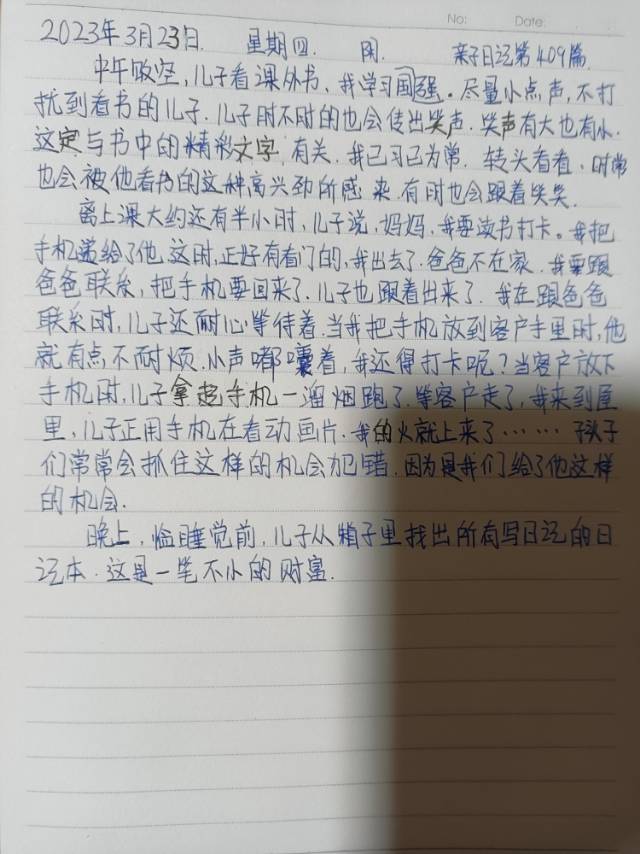 No: Date:
2023年3月23日. 星期四 阴 亲子日记第409篇.
中午饭空,儿子看课外书,我学习国强。尽量小点声,不打
扰到看书的儿子.儿子时不时的也会传出笑声.笑声有大也有小.
这定与书中的精彩文字有关.我已习已为常.转头看看,时常
也会被他看书的这种高兴劲所感来.有时也会跟着笑笑.
离上课大约还有半小时,儿子说,妈妈,我要读书打卡。我把
手机递给了他.这时,正好有看门的,我出去了.爸爸不在家.我要跟
爸爸联系,把手机要回来了.儿子也跟着出来了.我在跟爸爸
联系时,儿子还耐心等待着.当我把手机放到客户手里时,他
就有点不耐烦.小声嘟囔着,我还得打卡呢?当客户放下
手机时,儿子拿起手机一溜烟跑了.等客户走了,我来到屋
里,儿子正用手机在看动画片.我的火就上来了……孩子
们常常会抓住这样的机会犯错.因为是我们给了他这样
的机会.
晚上,临睡觉前,儿子从箱子里找出所有写日记的日
记本.这是一笔不小的财富.